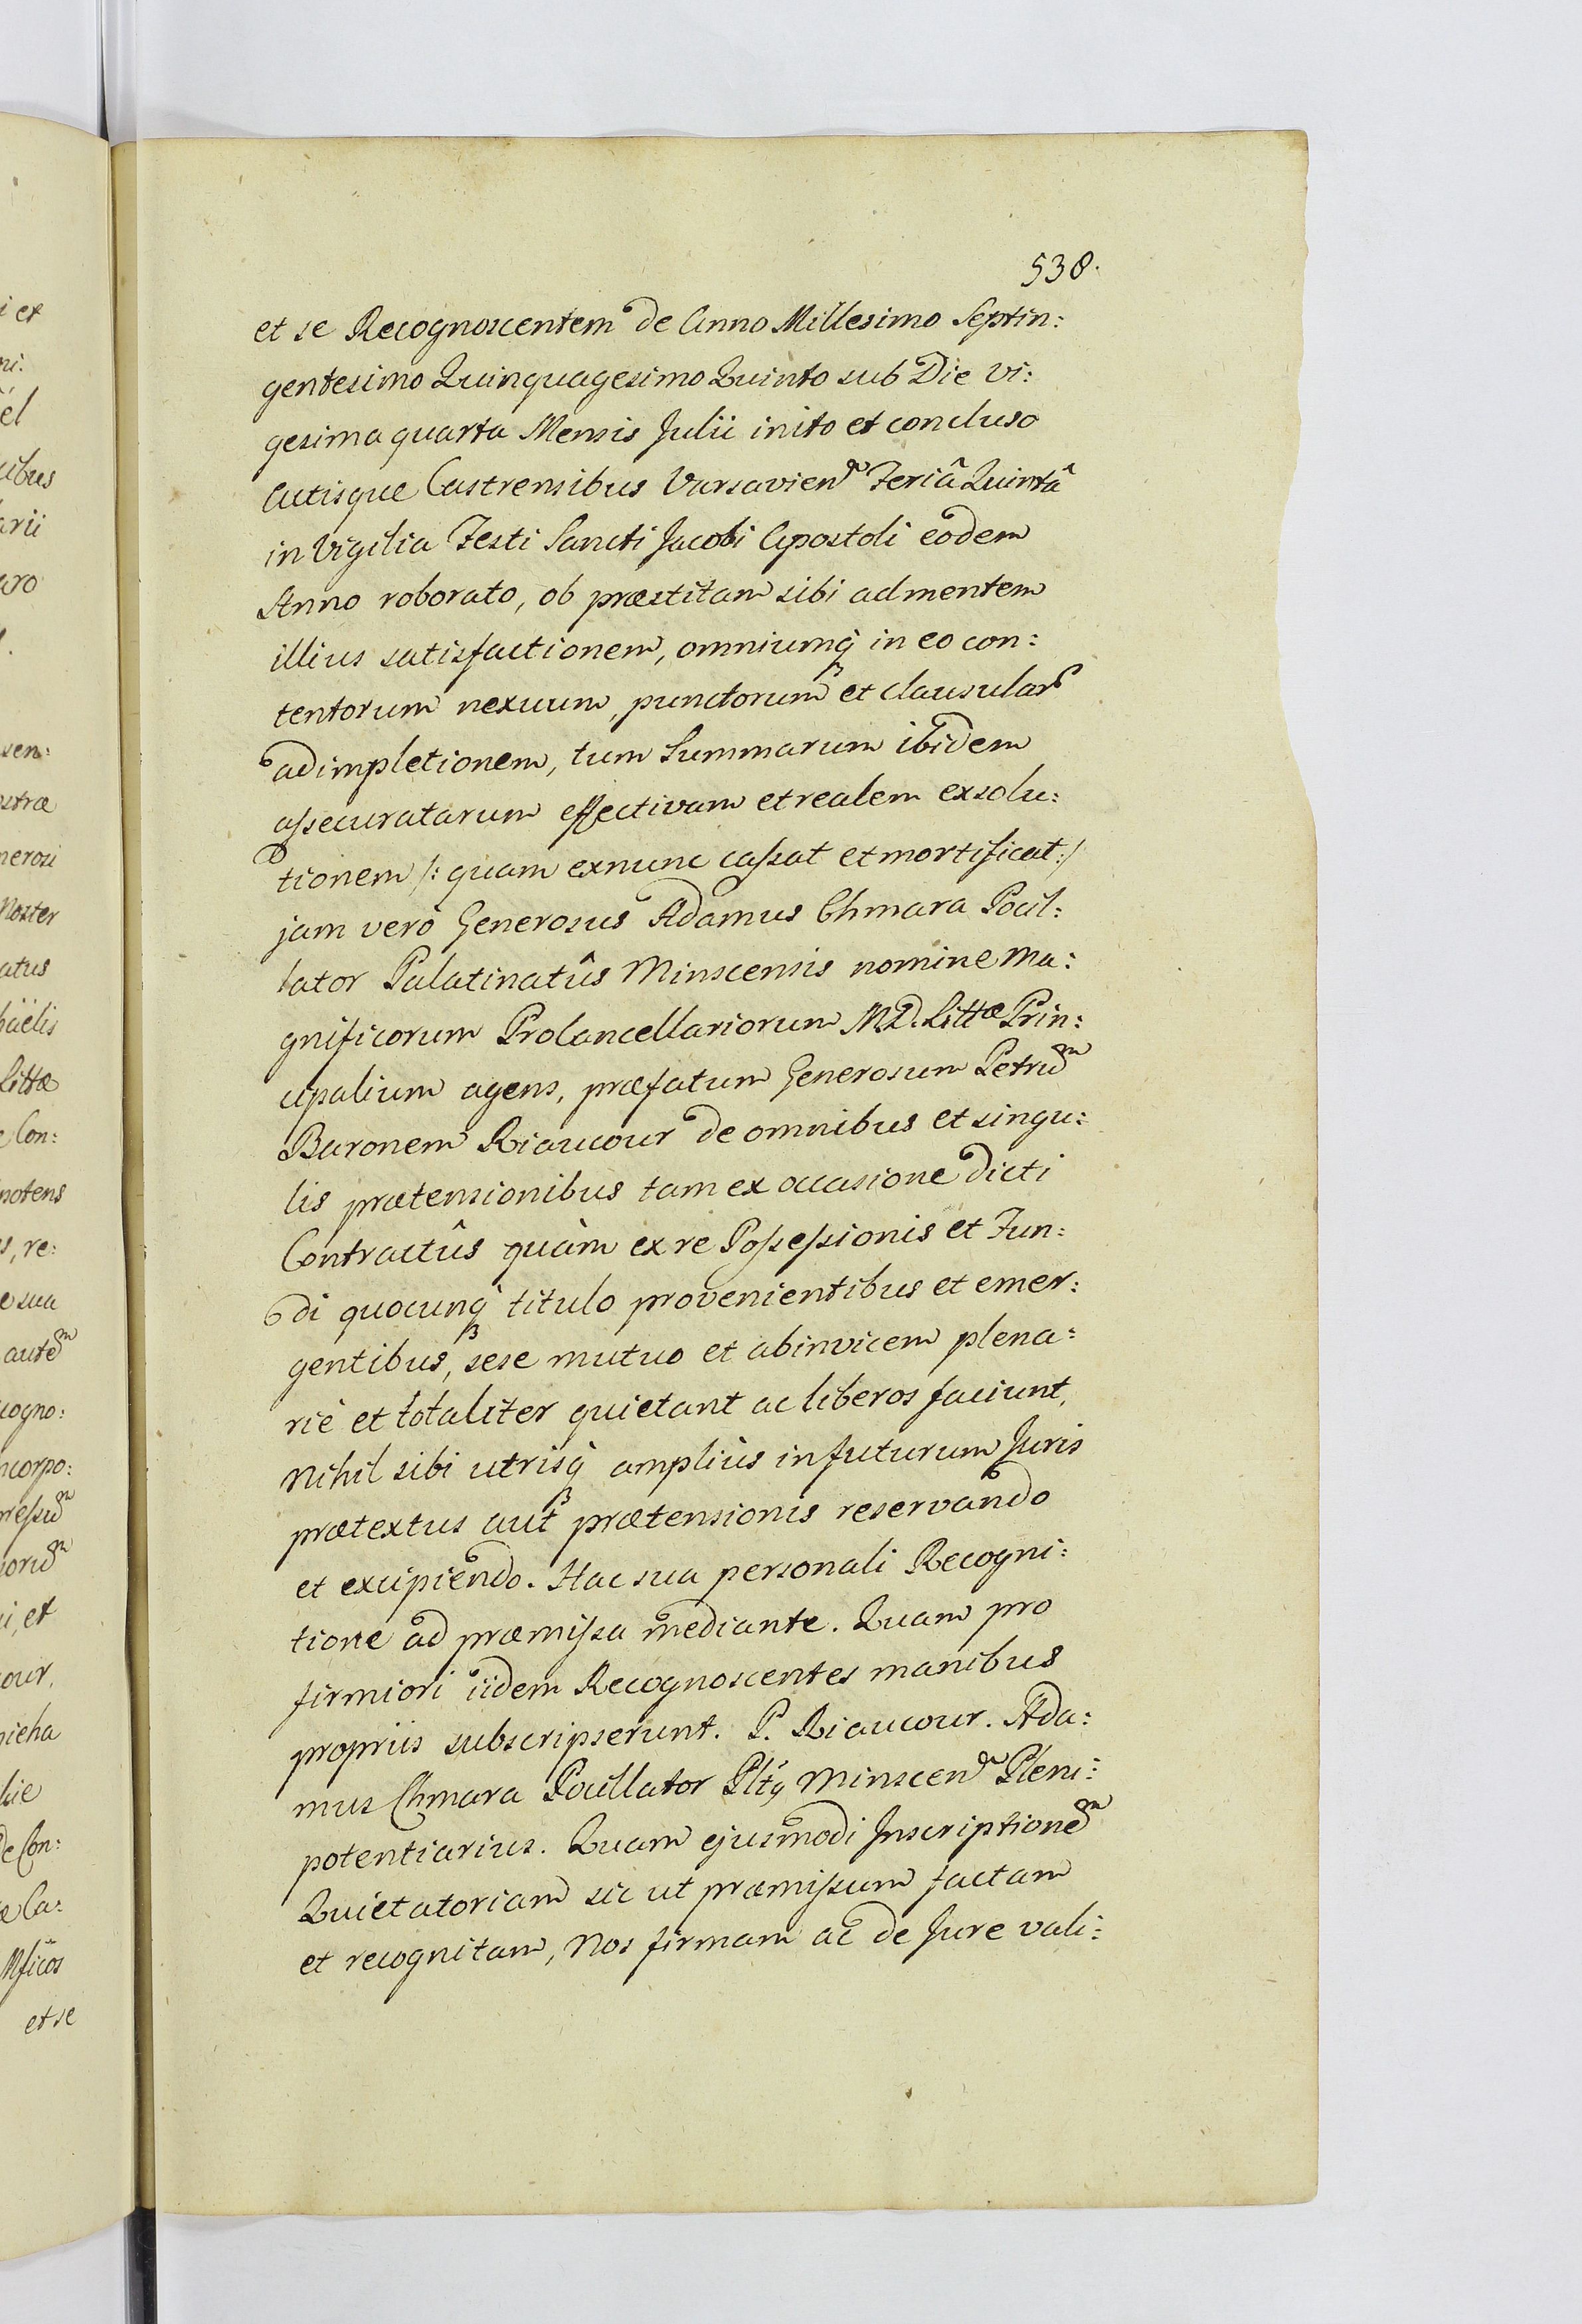 538.
et se Recognoscentem de Anno Millesimo Septin:
gentesimo Quinquagesimo Quinto sub Die vi:
gesima quarta Mensis Julii inito et concluso
Actisque Castrensibus Varsavien Feriâ Quintâ
in Vigilia Festi Sancti Jacobi Apostoli eodem
Anno roborato, ob præstitam sibi ad mentem
illius satisfactionem, omniumq in eo con:
tentorum nexuum, punctorum et clausular
adimpletionem, tum Summarum ibidem
assecuratarum effectivam et realem exsolu:
tionem /: quam exnunc cassat et mortificat :/
jam verò Generosus Adamus Chmara Pocil:
lator Palatinatûs Minscensis nomine Ma:
gnificorum ProCancellariorum M.D. Littæ Prin:
cipalium agens, præfatum Generosum Petrum
Baronem Riaucour de omnibus et singu:
lis prætensionibus tam ex occasione dicti
Contractûs quàm ex re Possessionis et Fun:
di quocunq titulo provenientibus et emer:
gentibus, sese mutuo et abinvicem plena:
riè et totaliter quietant ac liberos faciunt,
Nihil sibi utrisq ampliùs in futurum Juris
prætextus aut prætensionis reservando
et excipiendo. Hac sua personali Recogni:
tione ad præmissa mediante. Quam pro
firmiori iidem Recognoscentes manibus
propriis subscripserunt. P. Riaucour. Ada:
mus Chmara Pocillator Pltq Minscen Pleni:
potentiarius. Quam ejusmodi Inscriptionem
Quietatoriam sic ut præmissum factam
et recognitam, Nos firmam ac de Jure vali: